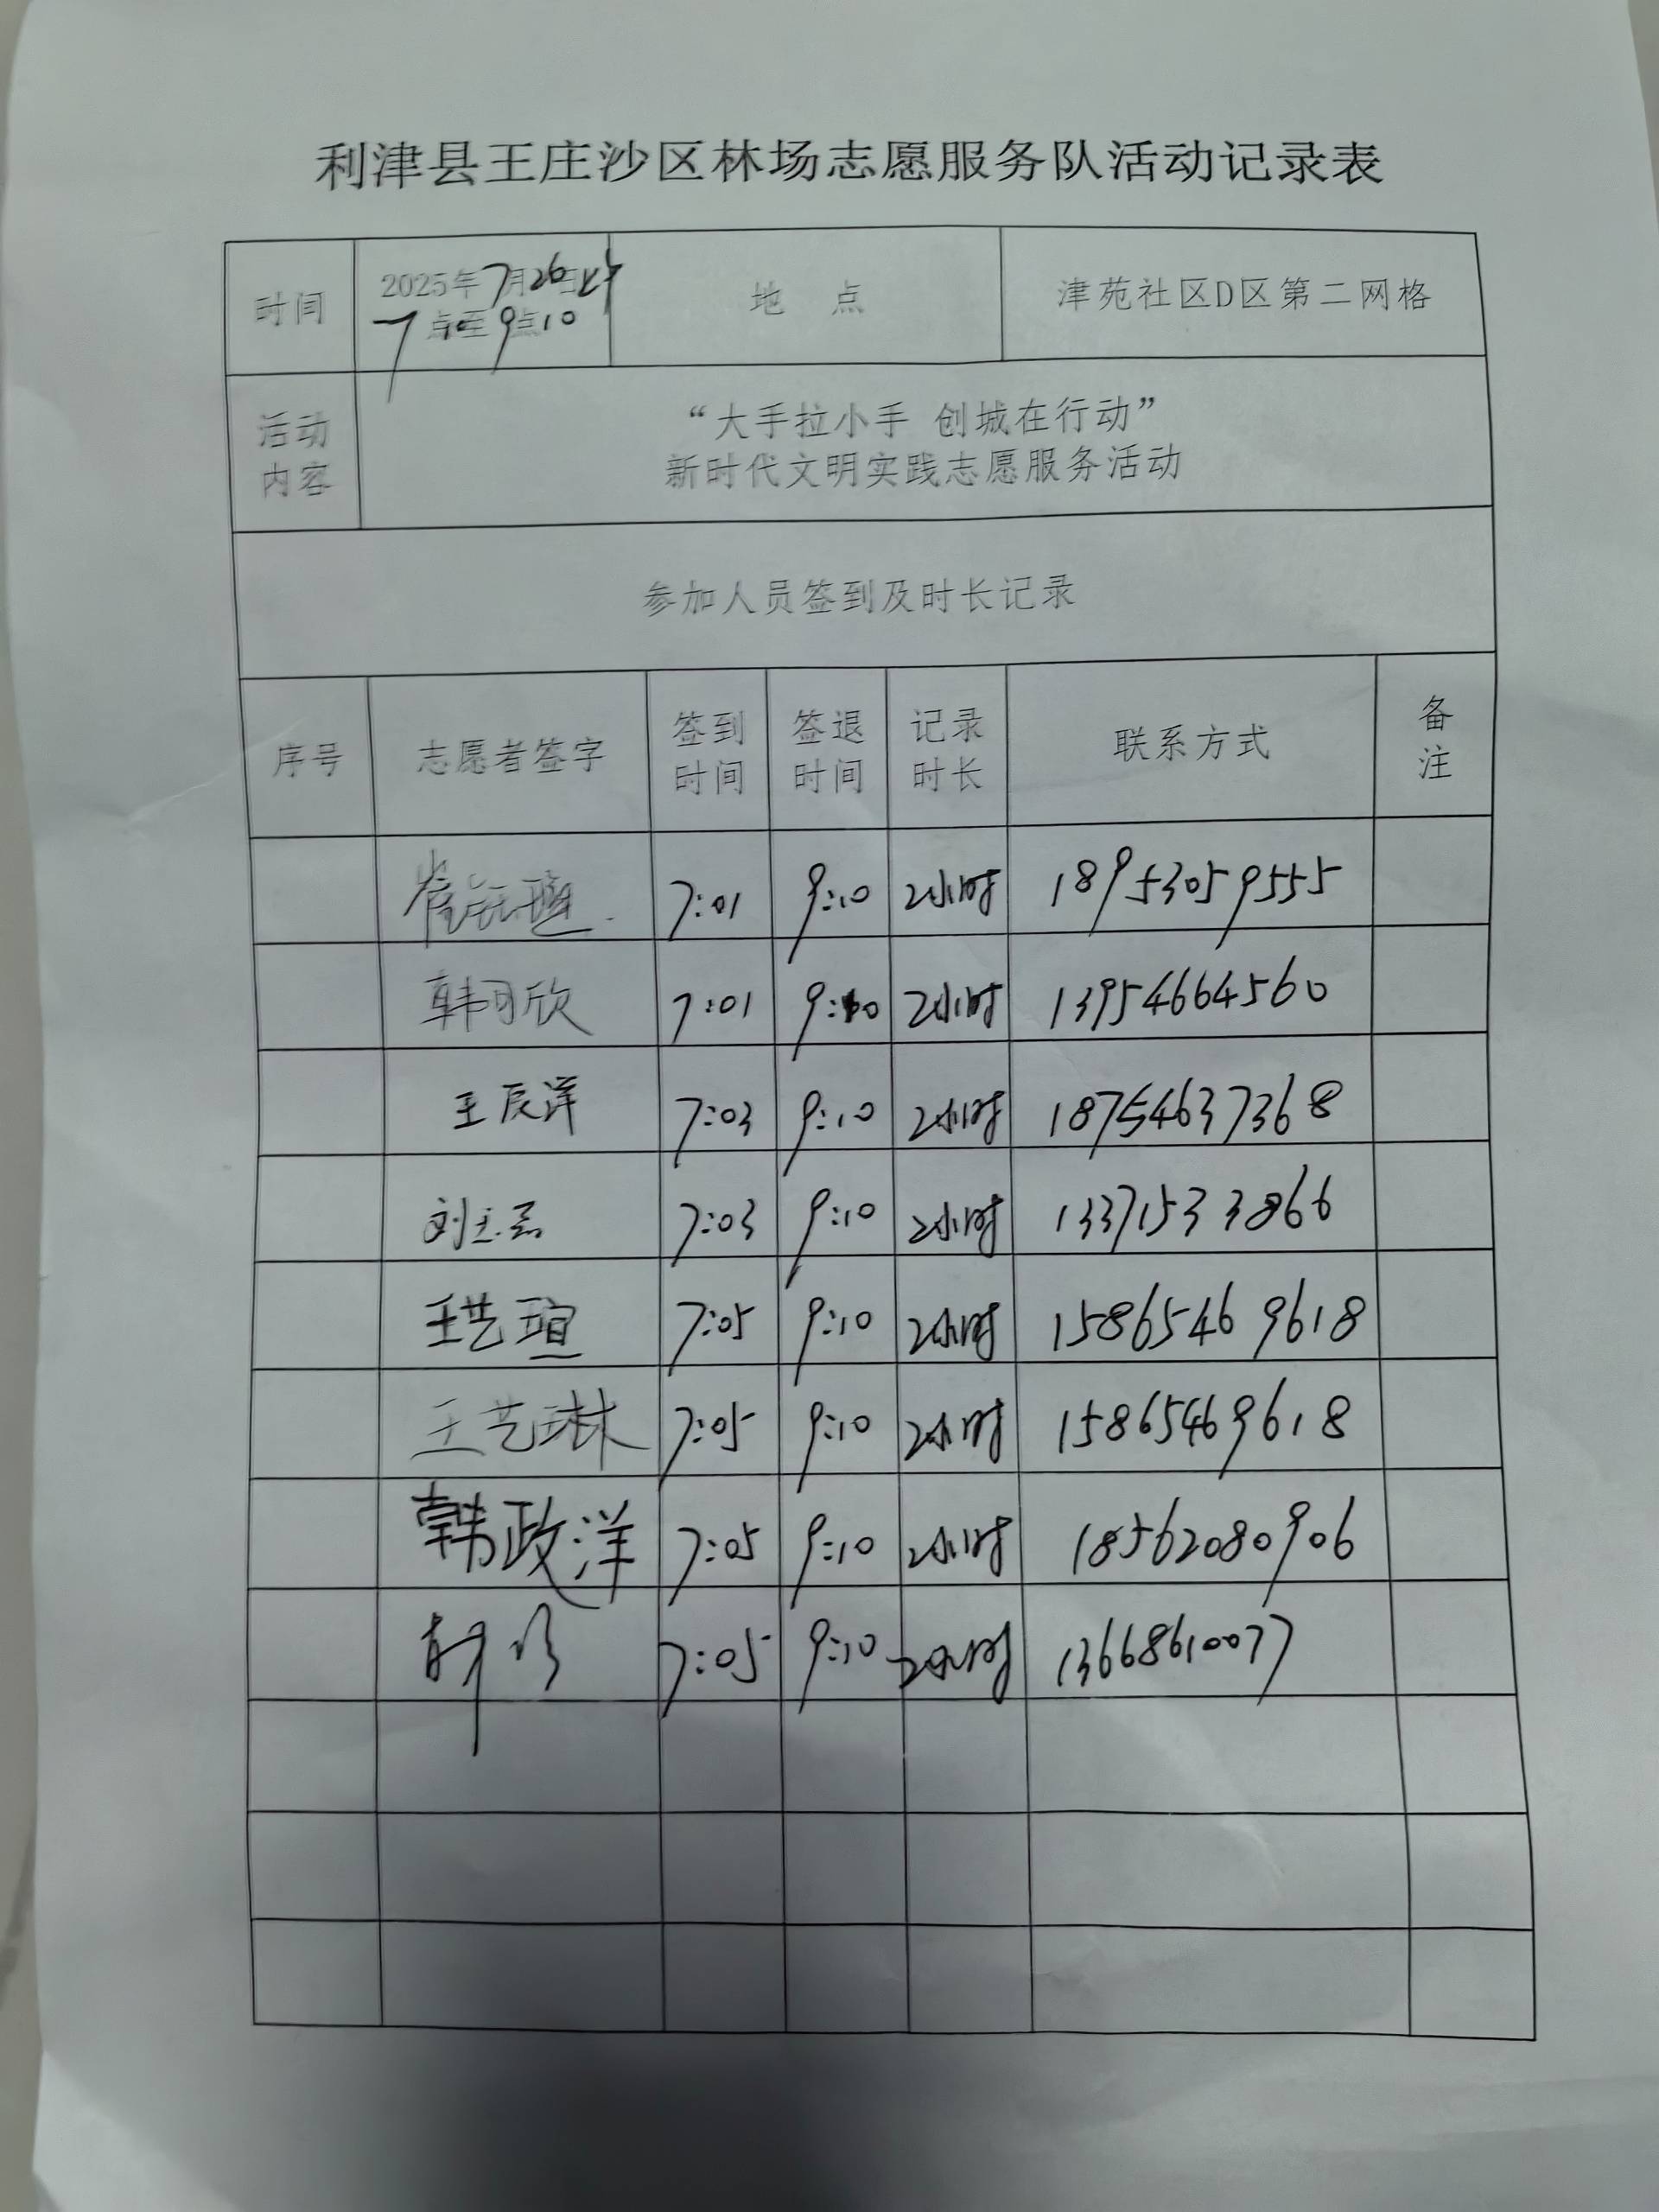 利津县王庄沙区林场志愿服务队活动记录表
时间 2025年7月26日 地 点 津苑社区D区第二网格
7点至9点10
活动 “大手拉小手 创城在行动”
内容 新时代文明实践志愿服务活动
参加人员签到及时长记录
序号 志愿者签字 签到时间 签退时间 记录时长 联系方式 备注
7:01 9:10 2小时 18953059555
韩可欣 7:01 9:10 2小时 13954664560
王辰洋 7:03 9:10 2小时 18754637368
刘 7:03 9:10 2小时 13371533866
王艺瑄 7:05 9:10 2小时 15865469618
王艺琳 7:05 9:10 2小时 15865469618
韩政洋 7:05 9:10 2小时 18562080906
7:05 9:10 2小时 13668610077